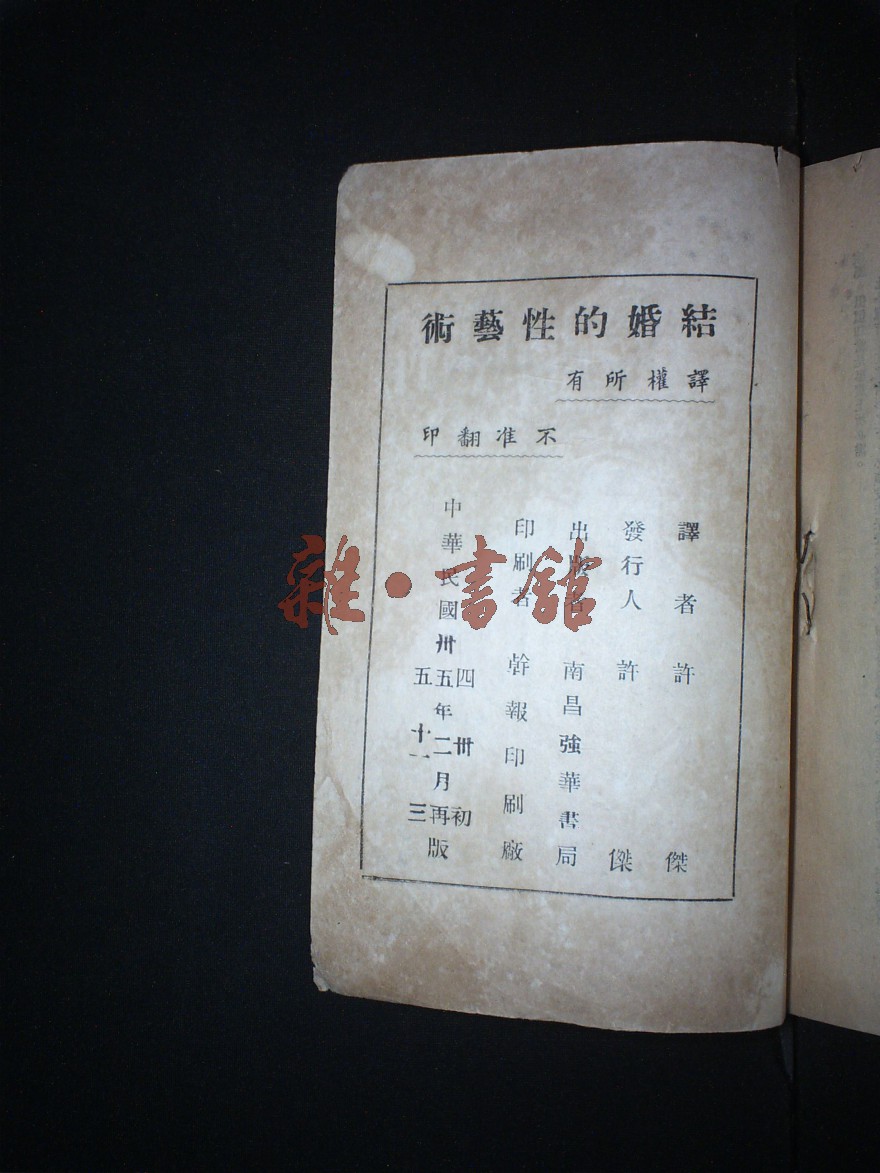 結婚的性藝術
譯權所有
不准翻印
譯者 許傑
發行人 許傑
出版者 南昌強華書局
印刷者 幹報印刷廠
中華民國卅四五五年卅二十一月初再三版
雜·書館